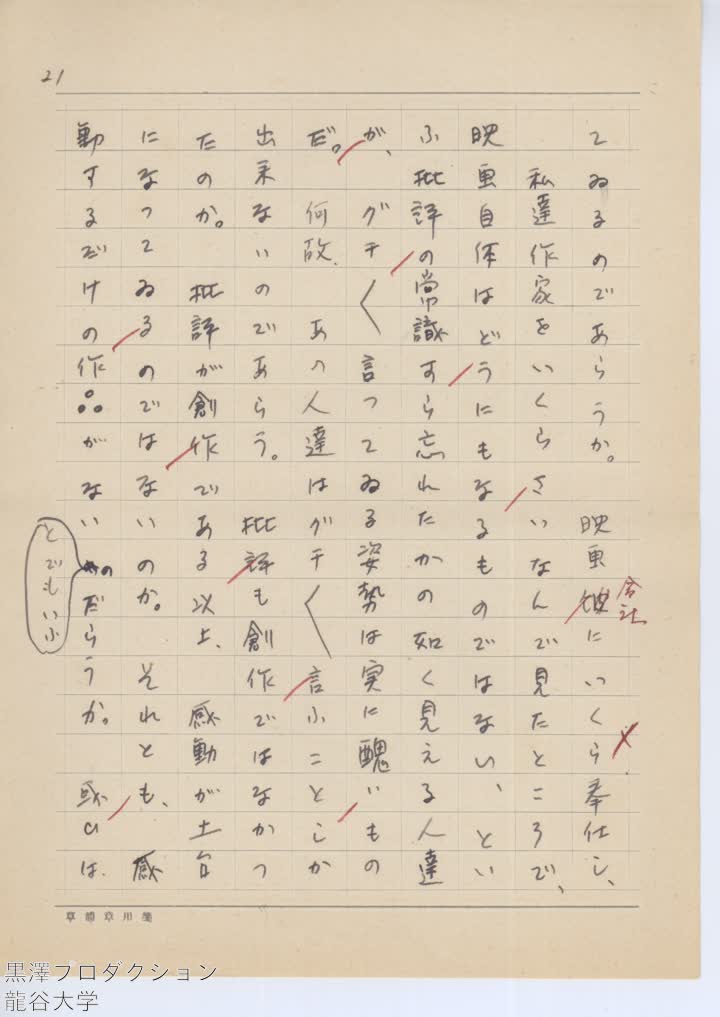 21
てゐるのであらうか。　映画彼にいくら奉仕し、
会社
私達作家をいくらさいなんで見たところで、
映画自体はどうにもなるものではない、とい
ふ批評の常識すら忘れたかの如く見える人達
が、グチ〱言つてゐる姿勢は実に醜いもの
だ。　何故、あの人達はグチ〱言ふことしか
出来ないのであらう。　批評も創作ではなかつ
たのか。　批評が創作である以上、感動が土台
になつてゐるのではないのか。　それとも、感
動するだけの作品がないのだらうか。　或ひは
とでもいふ
草稿用箋
黒澤プロダクション
龍谷大学